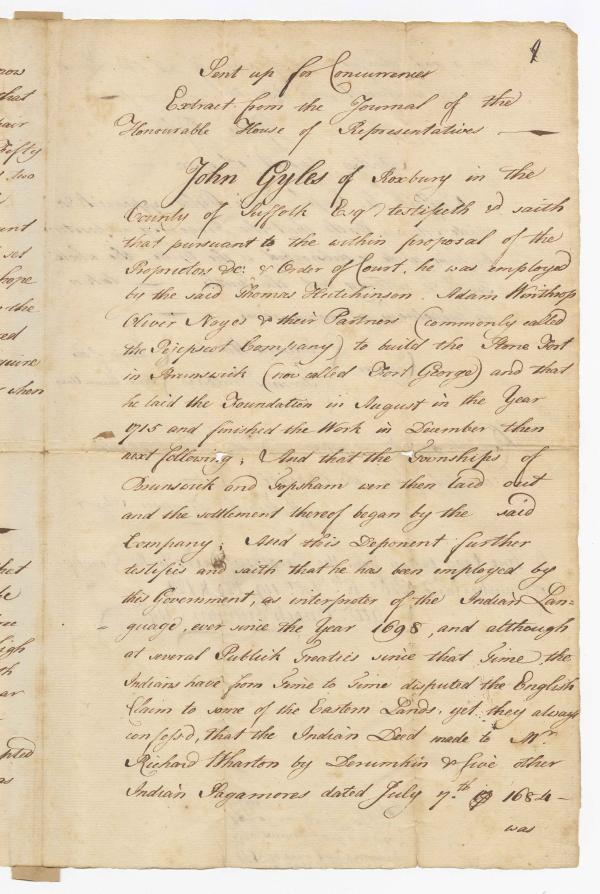 9
Sent up for Concurrence
Extract from the Journal of the
Honourable House of Representatives
John Gyles of Roxbury in the
County of Suffolk Esqr testifieth & saith
that pursuant to the within proposal of the
Proprietors &c. & Order of Court, he was employed
by the said Thomas Hutchinson. Adam Winthrop
Oliver Noyes & their Partners (commonly called
the Pejepscot Company) to build the Stone Fort
in Brunswick (now called Fort George) and that
he laid the Foundation in August in the Year
1715 and finished the Work in December then
next following; And that the Townships of
Brunswick and Topsham were then laid out
and the settlement thereof began by the said
Company; And this Deponent further
testifies and saith that he has been employed by
this Government, as interpreter of the Indian Lan=
guage, ever since the Year 1698, and although
at several Publick Treaties since that Time, the
Indians have from Time to Time disputed the English
Claim to some of the Eastern Lands, yet they always
confess'd, that the Indian Deed made to Mr.
Richard Wharton by Derumkin & five other
Indian Sagamores dated July 7.th 1684
was
now
that
pair
Fifty
two
set
hope
the
quire
when